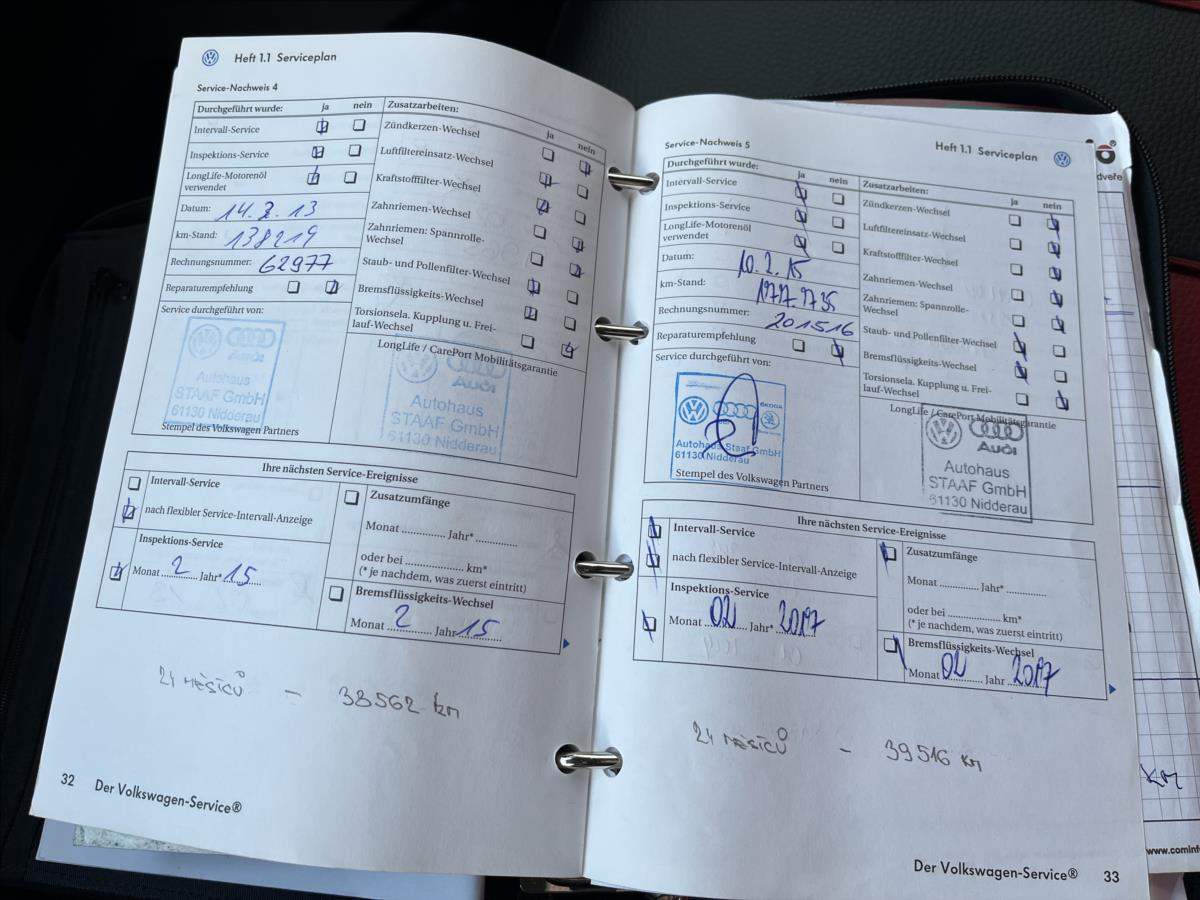 Heft 1.1 Serviceplan
Service-Nachweis 4
Durchgeführt wurde: ja nein
Intervall-Service
Inspektions-Service
LongLife-Motorenöl
verwendet
Datum: 14.2.13
km-Stand: 138219
Rechnungsnummer: 62977
Reparaturempfehlung
Service durchgeführt von:
Audi
Autohaus
STAAF GmbH
61130 Nidderau
Stempel des Volkswagen Partners
Zusatzarbeiten: ja nein
Zündkerzen-Wechsel
Luftfiltereinsatz-Wechsel
Kraftstofffilter-Wechsel
Zahnriemen-Wechsel
Zahnriemen: Spannrolle-
Wechsel
Staub- und Pollenfilter-Wechsel
Bremsflüssigkeits-Wechsel
Torsionsela. Kupplung u. Frei-
lauf-Wechsel
LongLife / CarePort Mobilitätsgarantie
Audi
Autohaus
STAAF GmbH
61130 Nidderau
Ihre nächsten Service-Ereignisse
Intervall-Service
nach flexibler Service-Intervall-Anzeige
Inspektions-Service
Monat 2 Jahr* 15
Zusatzumfänge
Monat ............ Jahr* ............
oder bei ............ km*
(* je nachdem, was zuerst eintritt)
Bremsflüssigkeits-Wechsel
Monat 2 Jahr 15
24 MĚSÍCŮ – 38562 km
32 Der Volkswagen-Service®
Service-Nachweis 5
Heft 1.1 Serviceplan
Durchgeführt wurde: ja nein
Intervall-Service
Inspektions-Service
LongLife-Motorenöl
verwendet
Datum: 10.2.15
km-Stand:
Rechnungsnummer: 201516
Reparaturempfehlung
Service durchgeführt von:
ŠKODA
Autohaus Staaf GmbH
61130 Nidderau
Stempel des Volkswagen Partners
Zusatzarbeiten: ja nein
Zündkerzen-Wechsel
Luftfiltereinsatz-Wechsel
Kraftstofffilter-Wechsel
Zahnriemen-Wechsel
Zahnriemen: Spannrolle-
Wechsel
Staub- und Pollenfilter-Wechsel
Bremsflüssigkeits-Wechsel
Torsionsela. Kupplung u. Frei-
lauf-Wechsel
LongLife / CarePort Mobilitätsgarantie
Audi
Autohaus
STAAF GmbH
61130 Nidderau
Ihre nächsten Service-Ereignisse
Intervall-Service
nach flexibler Service-Intervall-Anzeige
Inspektions-Service
Monat 02 Jahr* 2017
Zusatzumfänge
Monat ............ Jahr* ............
oder bei ............ km*
(* je nachdem, was zuerst eintritt)
Bremsflüssigkeits-Wechsel
Monat 02 Jahr 2017
24 MĚSÍCŮ – 39516 km
Der Volkswagen-Service® 33
km